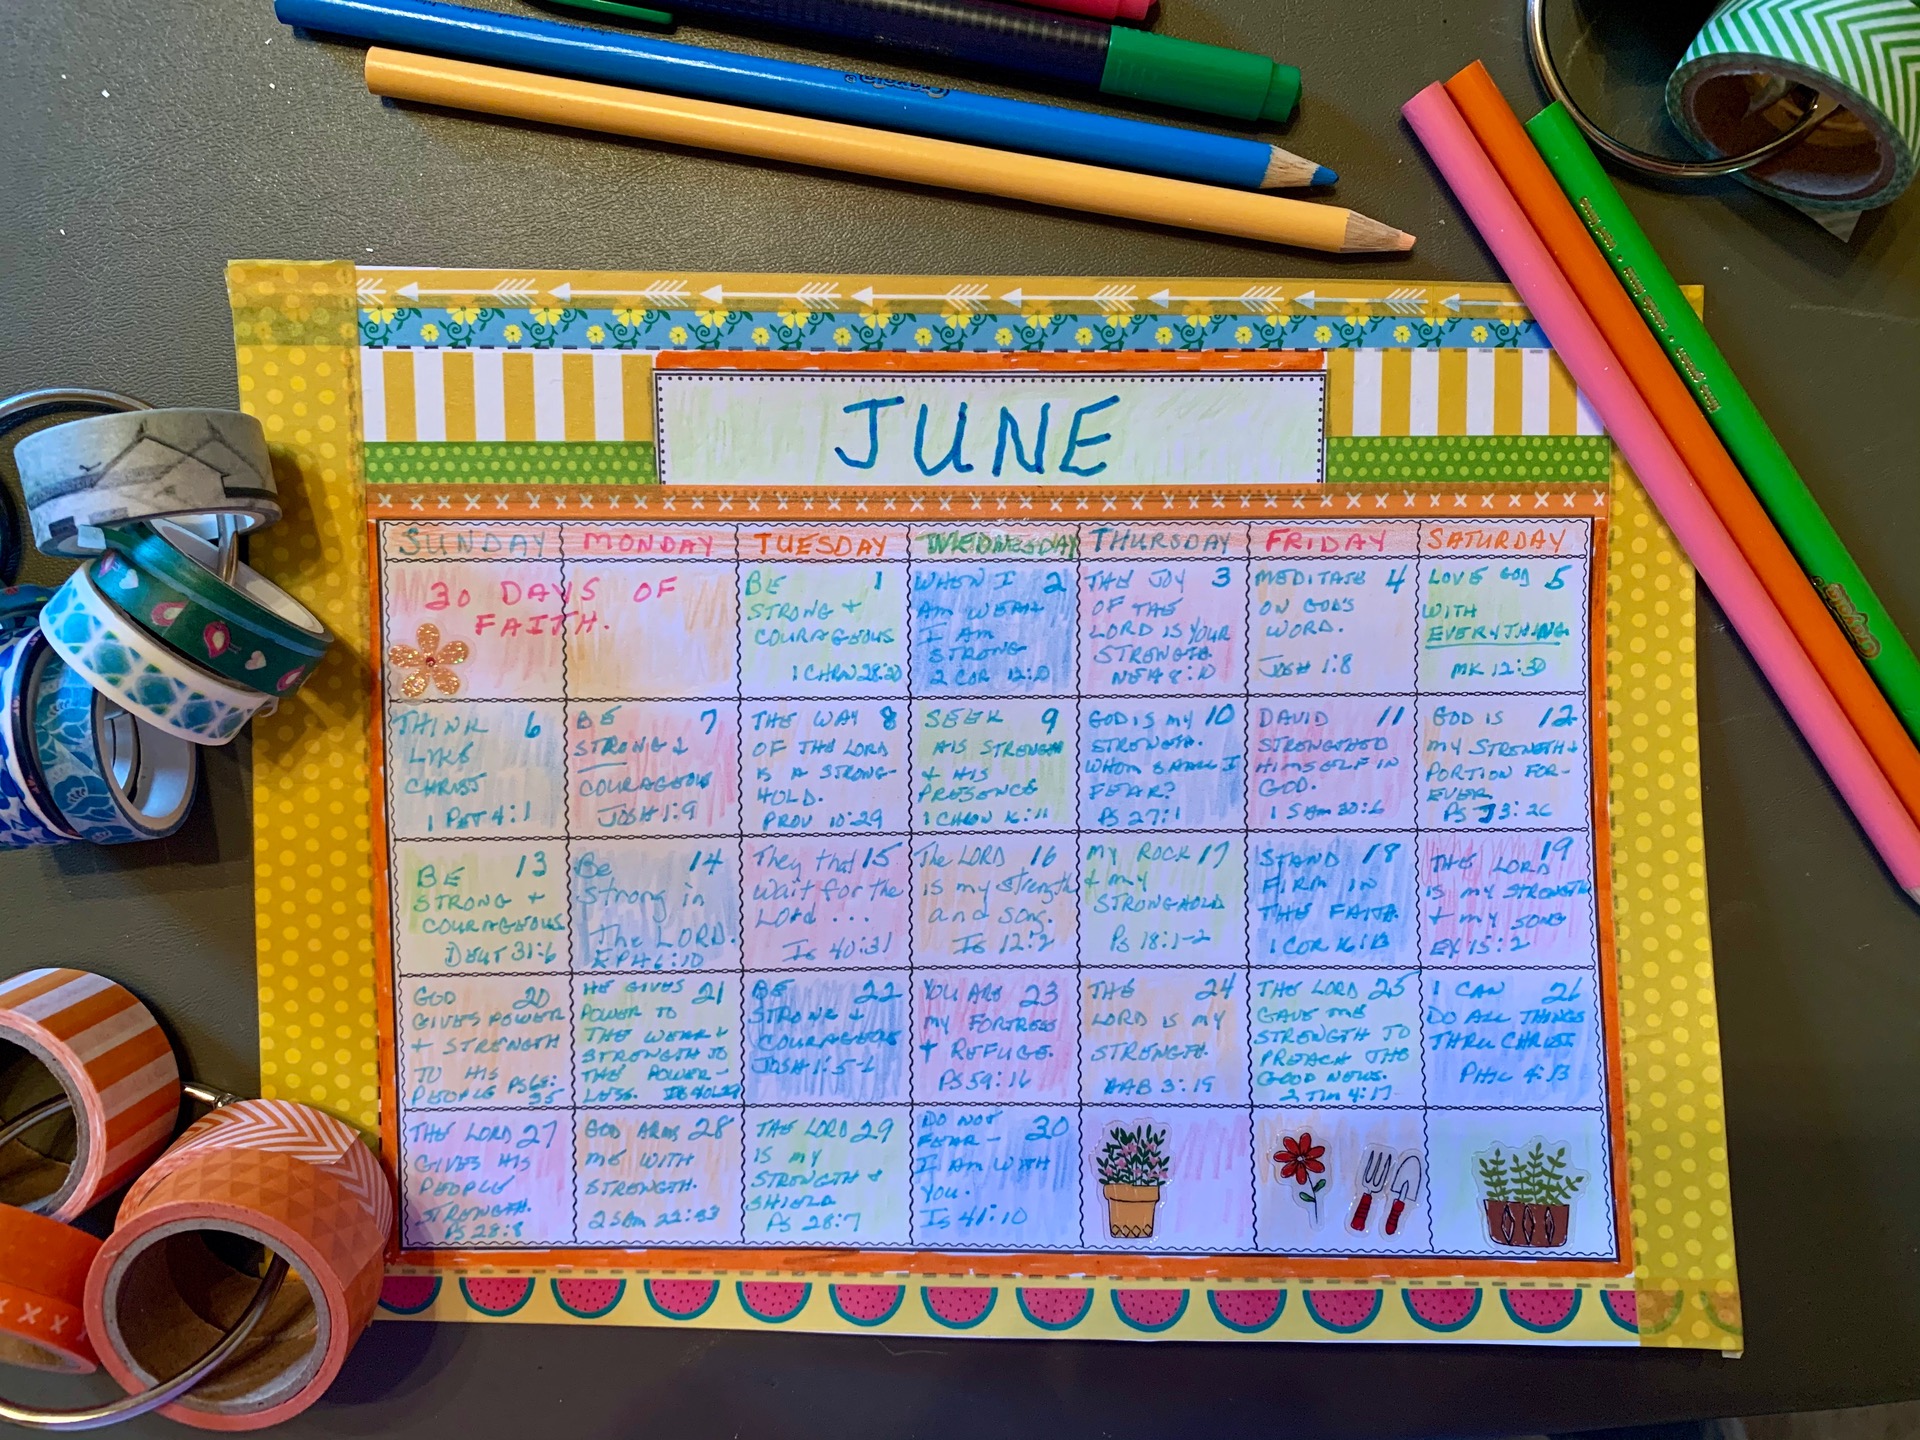 Crayola
Crayola
JUNE
SUNDAY MONDAY TUESDAY WEDNESDAY THURSDAY FRIDAY SATURDAY
30 DAYS OF
FAITH.
BE 1
STRONG +
COURAGEOUS
1 CHRN 28:20
WHEN I 2
AM WEAK
I AM
STRONG
2 COR 12:10
THE JOY 3
OF THE
LORD IS YOUR
STRENGTH
NEH 8:10
MEDITATE 4
ON GOD'S
WORD.
JOSH 1:8
LOVE GOD 5
WITH
EVERYTHING.
MK 12:30
THINK 6
LIKE
CHRIST
1 PET 4:1
BE 7
STRONG &
COURAGEOUS
JOSH 1:9
THE WAY 8
OF THE LORD
IS A STRONG-
HOLD.
PROV 10:29
SEEK 9
HIS STRENGTH
& HIS
PRESENCE
1 CHRON 16:11
GOD IS MY 10
STRENGTH.
WHOM SHALL I
FEAR?
PS 27:1
DAVID 11
STRENGTHED
HIMSELF IN
GOD.
1 SAM 30:6
GOD IS 12
MY STRENGTH +
PORTION FOR-
EVER
PS 73:26
BE 13
STRONG +
COURAGEOUS
DEUT 31:6
Be 14
Strong in
the LORD.
EPH 6:10
They that 15
wait for the
Lord ...
Is 40:31
The LORD 16
is my strength
and song.
Is 12:2
MY ROCK 17
+ my
STRONGHOLD
Ps 18:1-2
STAND 18
FIRM IN
THE FAITH.
1 COR 16:13
THE LORD 19
IS MY STRENGTH
+ MY SONG
EX 15:2
GOD 20
GIVES POWER
+ STRENGTH
TO HIS
PEOPLE PS 68:
35
HE GIVES 21
POWER TO
THE WEAK +
STRENGTH TO
THE POWER-
LESS. IS 40:29
BE 22
STRONG +
COURAGEOUS
JOSH 1:5-6
YOU ARE 23
MY FORTRESS
+ REFUGE.
PS 59:16
THE 24
LORD IS MY
STRENGTH.
HAB 3:19
THE LORD 25
GAVE ME
STRENGTH TO
PREACH THE
GOOD NEWS.
2 TIM 4:17
I CAN 26
DO ALL THINGS
THRU CHRIST
PHIL 4:13
THE LORD 27
GIVES HIS
PEOPLE
STRENGTH.
PS 28:8
GOD ARMS 28
ME WITH
STRENGTH.
2 SAM 22:33
THE LORD 29
IS MY
STRENGTH +
SHIELD
PS 28:7
DO NOT 30
FEAR -
I AM WITH
YOU.
IS 41:10